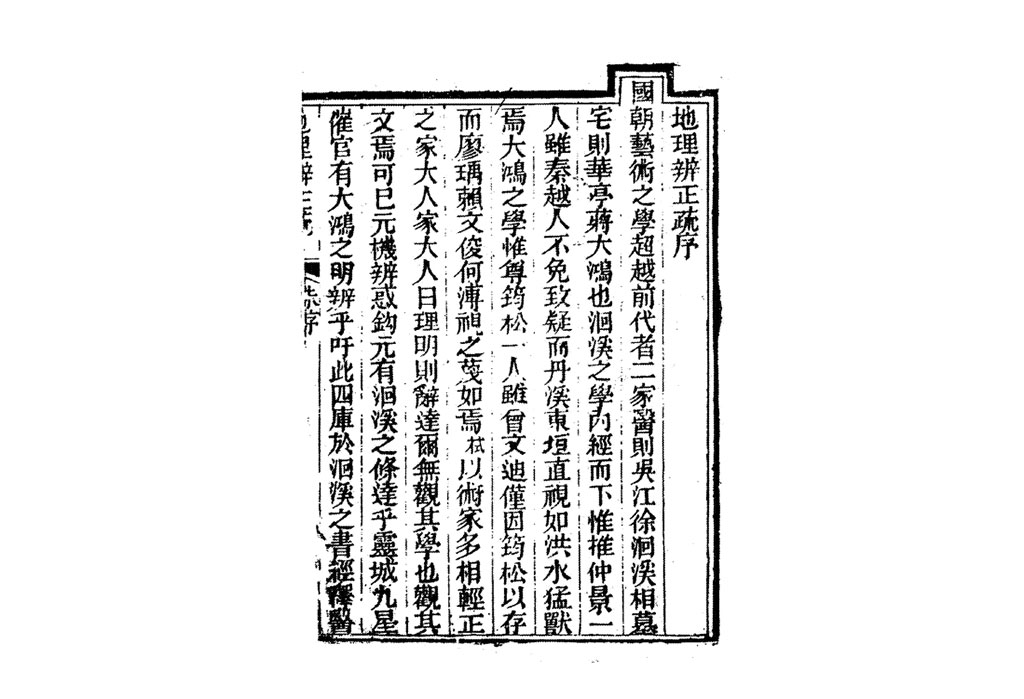 地理辨正疏序
國朝藝術之學超越前代者二家醫則吳江徐洄溪相墓
宅則華亭蔣大鴻也洄溪之學內經而下惟推仲景一
人雖秦越人不免致疑而丹溪東垣直視如洪水猛獸
焉大鴻之學惟尊筠松一人雖曾文迪僅因筠松以存
而廖瑀賴文俊何溥視之蔑如焉栻以術家多相輕正
之家大人家大人曰理明則辭達爾無觀其學也觀其
文焉可巳元機辨惑鈎元有洄溪之條達乎靈城九星
催官有大鴻之明辨乎吁此四庫於洄溪之書經釋醫